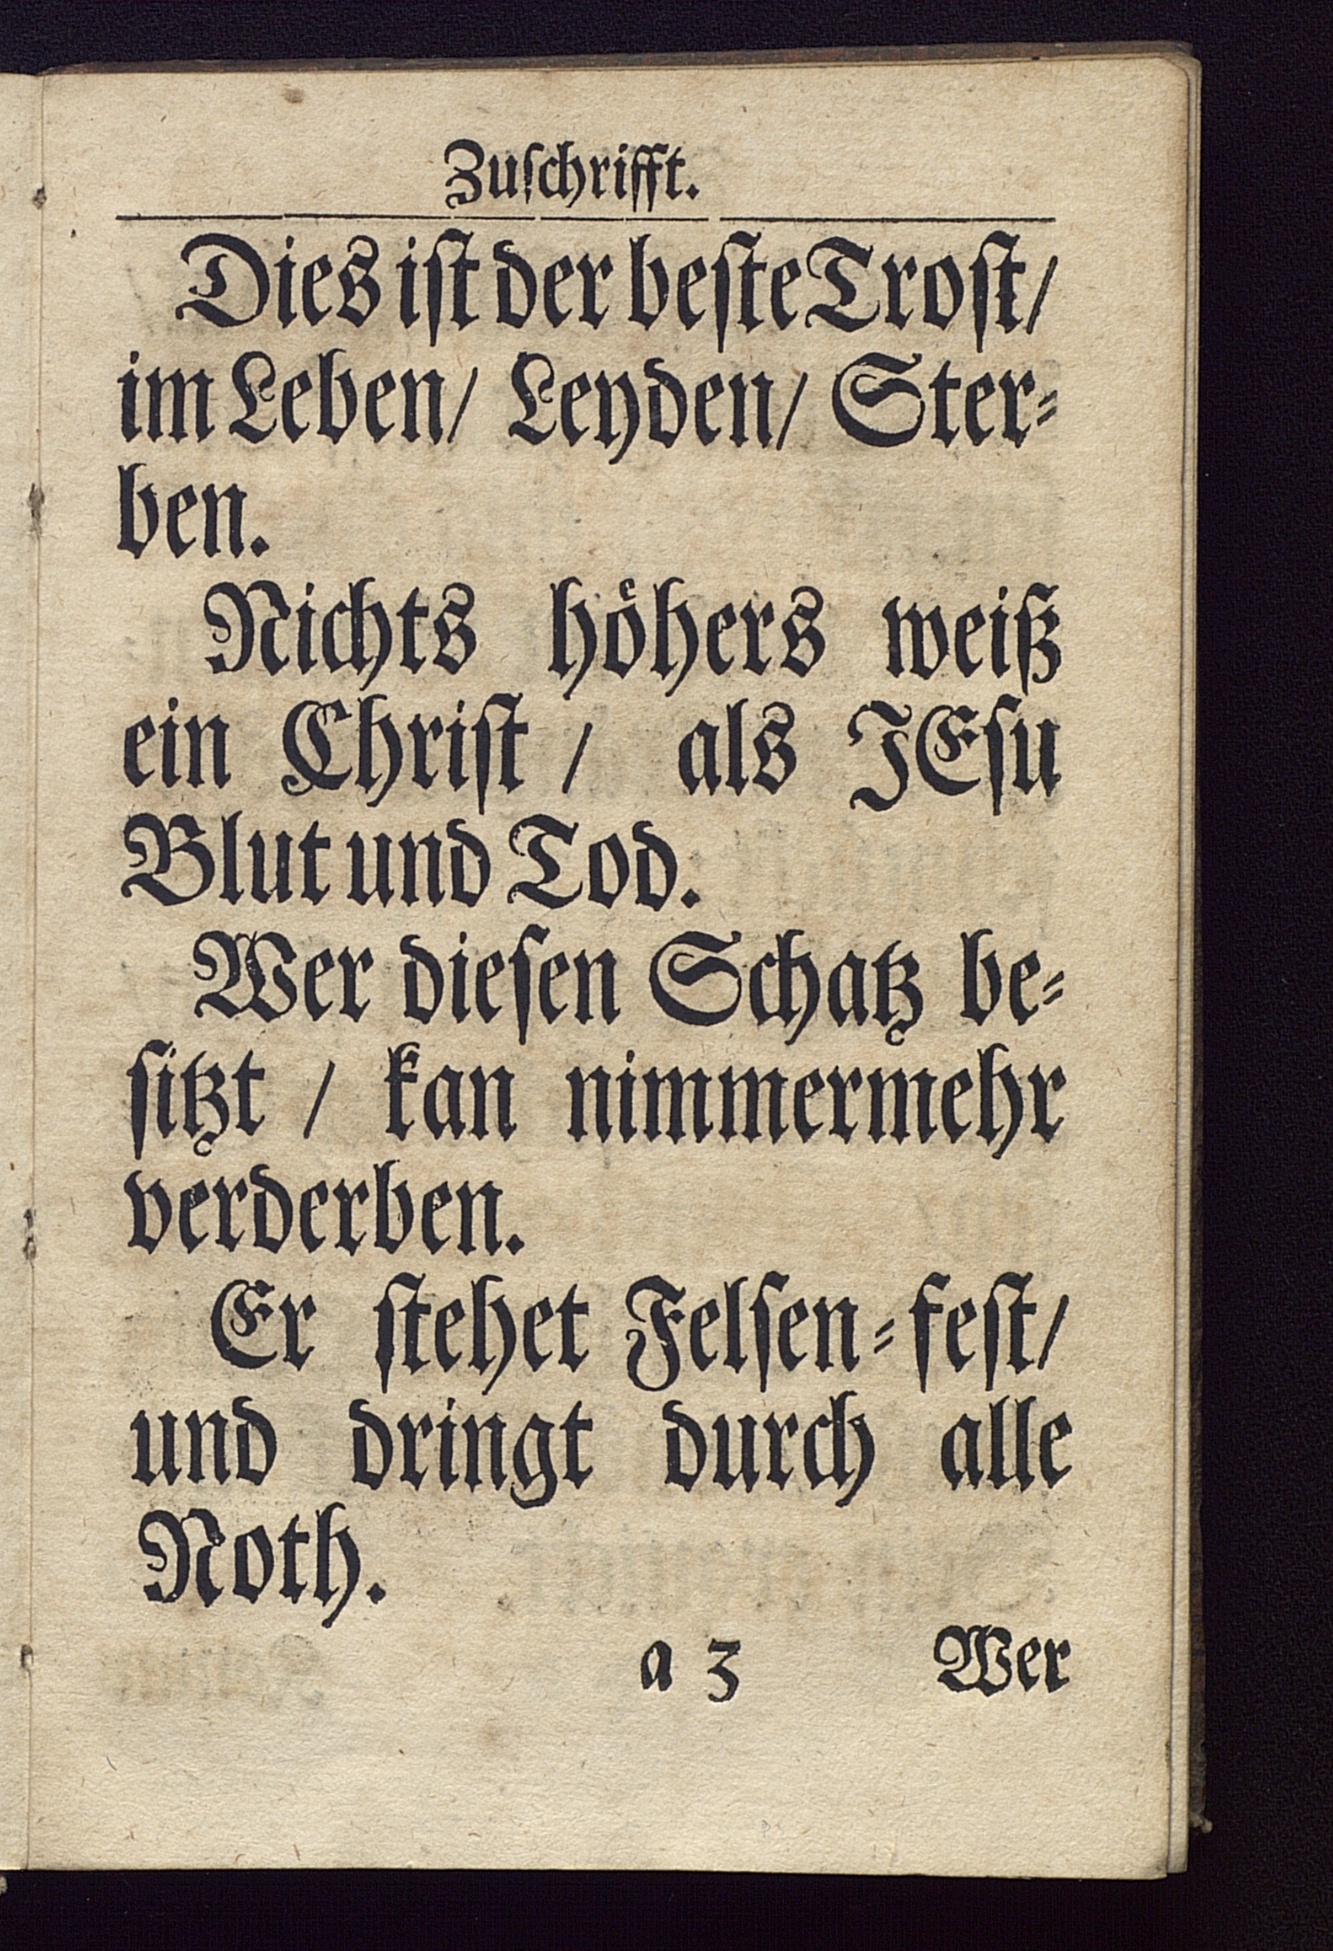 Zuſchrifft.
Dies iſt der beſte Troſt/
im Leben/ Leyden/ Ster⸗
ben.
Nichts hoͤhers weiß
ein Chriſt / als JEſu
Blut und Tod.
Wer dieſen Schatz be⸗
ſitzt / kan nimmermehr
verderben.
Er ſtehet Felſen⸗feſt/
und dringt durch alle
Noth.
a 3 Wer